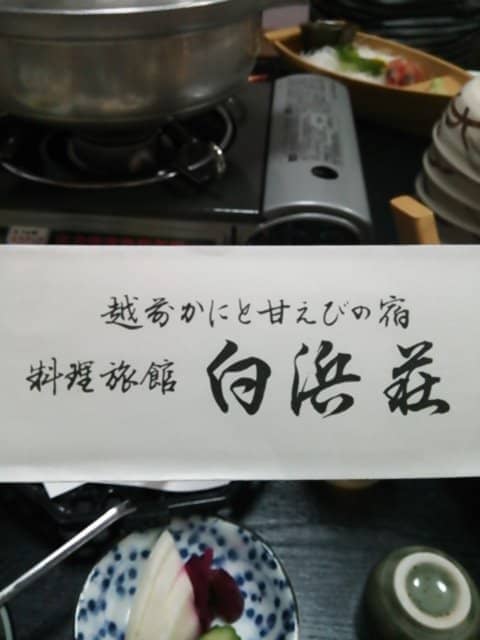 越前かにと甘えびの宿
料理旅館 白浜荘